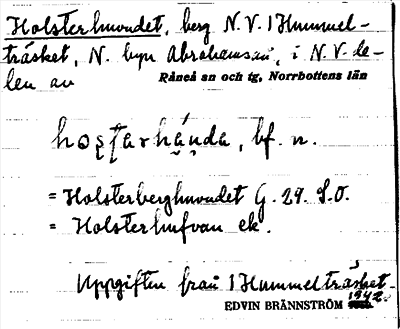 Holsterhuvudet, berg N.V. 1 Hummel-
träsket, N. byn Abrahamsån, i N.V. de-
len av Råneå sn och tg, Norrbottens län
hoʂʈarhá̤ṳda, bf. n.
= Holsterberghuvudet G. 29. S.O.
= Holsterhufvan ek.
Uppgiften från 1 Hummelträsket.
EDVIN BRÄNNSTRÖM 1942.